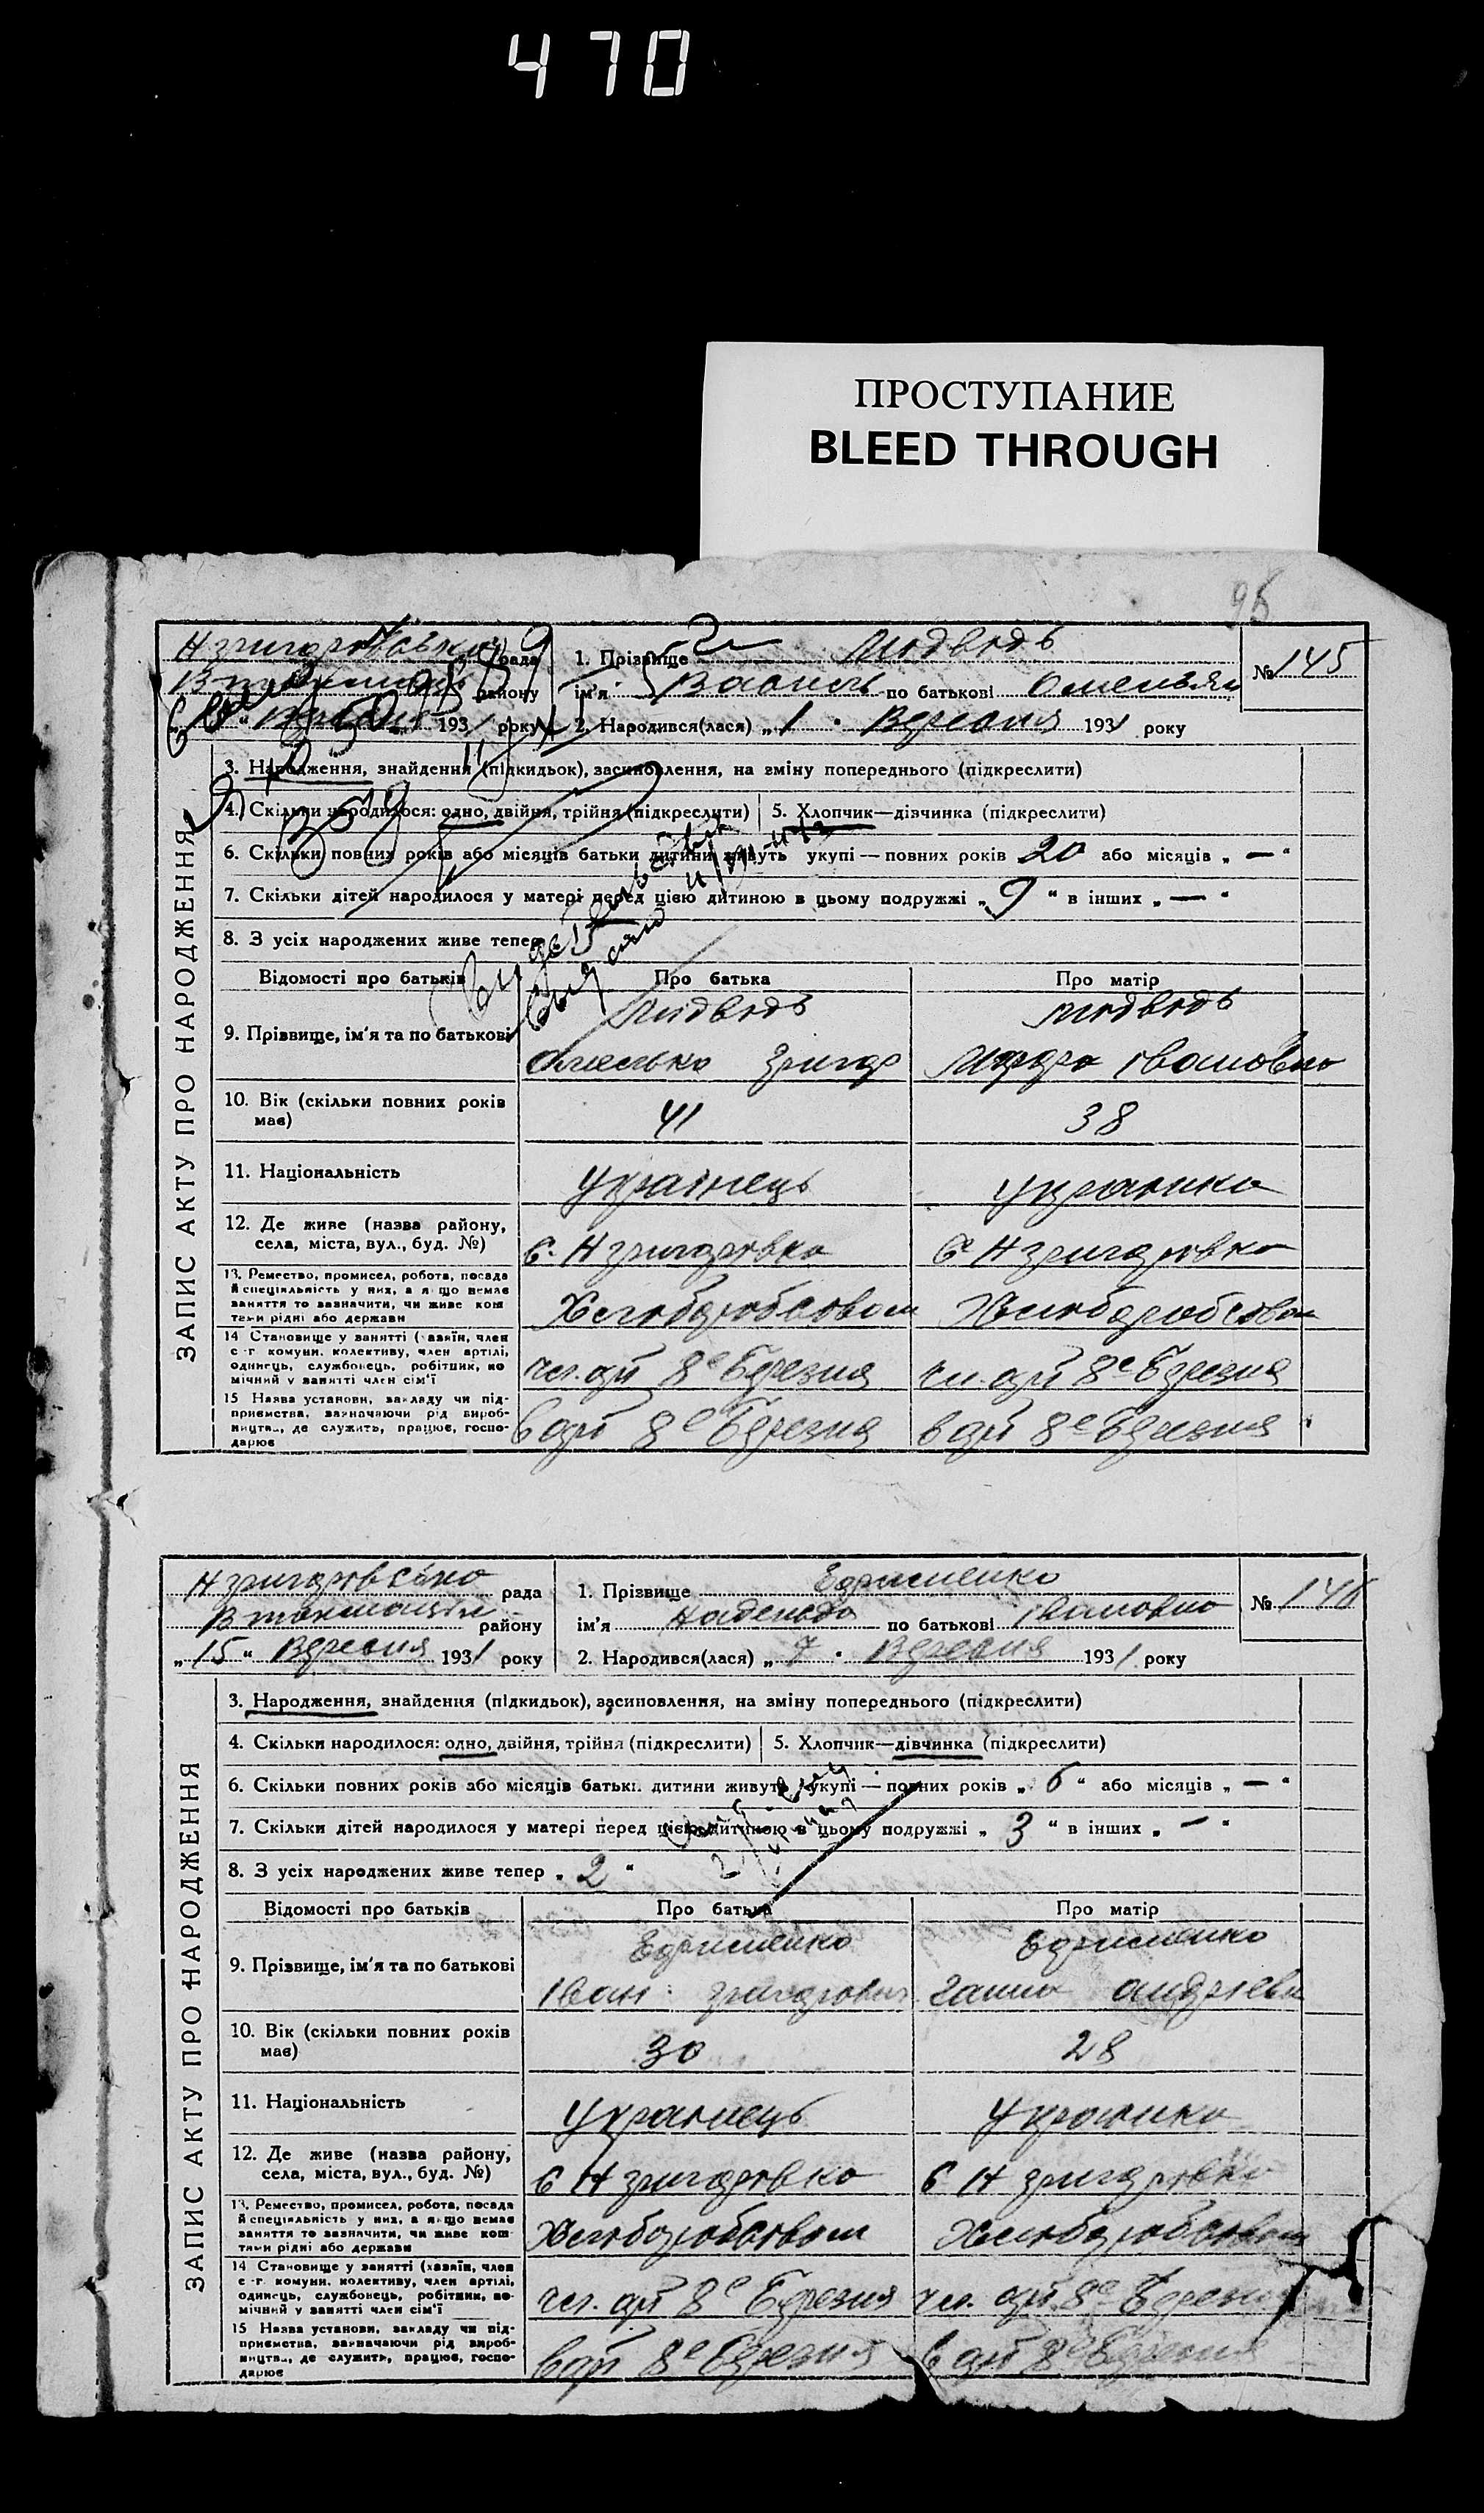 470
ПРОСТУПАНИЕ
BLEED THROUGH
95
рада
району
1931 року
1. Прізвище Медведь
ім'я Василь по батькові Омельян
2. Народився(лася) „1" Вересня 1931 року
№ 145
ЗАПИС АКТУ ПРО НАРОДЖЕННЯ
3. Народження, знайдення (підкидьок), засиновлення, на зміну попереднього (підкреслити)
4. Скільки народилося: одно, двійня, трійня (підкреслити) 5. Хлопчик—дівчинка (підкреслити)
6. Скільки повних років або місяців батьки дитини живуть укупі — повних років 20 або місяців „—"
7. Скільки дітей народилося у матері перед цією дитиною в цьому подружжі „9" в інших „—"
8. З усіх народжених живе тепер
Відомості про батьків Про батька Про матір
9. Прізвище, ім'я та по батькові
Медведь Медведь
Омелько Григор Івановна
10. Вік (скільки повних років має) 41 38
11. Національність Українець Українка
12. Де живе (назва району, села, міста, вул., буд. №) с. Н Григоровка с Н Григоровка
13. Ремество, промисел, робота, посада й спеціяльність у них, а якщо немає заняття то зазначити, чи живе коштами рідні або держави
Хлеборобством Хлеборобством
14 Становище у занятті (хазяїн, член с.-г. комуни, колективу, член артілі, одинець, службовець, робітник, помічний у занятті член сім'ї
чл. арт 8е Березня чл. арт 8е Березня
15 Назва установи, закладу чи підприємства, зазначаючи рід виробництва, де служить, працює, господарює
в арт 8е Березня в арт 8е Березня
Н Григоровська рада
району
„15" Вересня 1931 року
1. Прізвище Ефименко
ім'я Надежда по батькові Івановна
2. Народився(лася) „7" Вересня 1931 року
№ 146
ЗАПИС АКТУ ПРО НАРОДЖЕННЯ
3. Народження, знайдення (підкидьок), засиновлення, на зміну попереднього (підкреслити)
4. Скільки народилося: одно, двійня, трійня (підкреслити) 5. Хлопчик—дівчинка (підкреслити)
6. Скільки повних років або місяців батьки дитини живуть укупі — повних років „6" або місяців „—"
7. Скільки дітей народилося у матері перед цією дитиною в цьому подружжі „3" в інших „—"
8. З усіх народжених живе тепер „2"
Відомості про батьків Про батька Про матір
9. Прізвище, ім'я та по батькові
Ефименко Ефименко
Іван Григорович Ганна Андріевн
10. Вік (скільки повних років має) 30 28
11. Національність Українець Українка
12. Де живе (назва району, села, міста, вул., буд. №) с Н Григоровка с Н Григоровка
13. Ремество, промисел, робота, посада й спеціяльність у них, а якщо немає заняття то зазначити, чи живе коштами рідні або держави
Хлеборобством Хлеборобством
14 Становище у занятті (хазяїн, член с.-г. комуни, колективу, член артілі, одинець, службовець, робітник, помічний у занятті член сім'ї
чл. арт 8е Березня чл. арт 8е Березня
15 Назва установи, закладу чи підприємства, зазначаючи рід виробництва, де служить, працює, господарює
в арт 8е Березня в арт 8е Березня